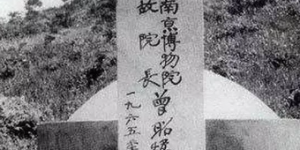 南京博物院
故院長
曾昭燏
一九六五